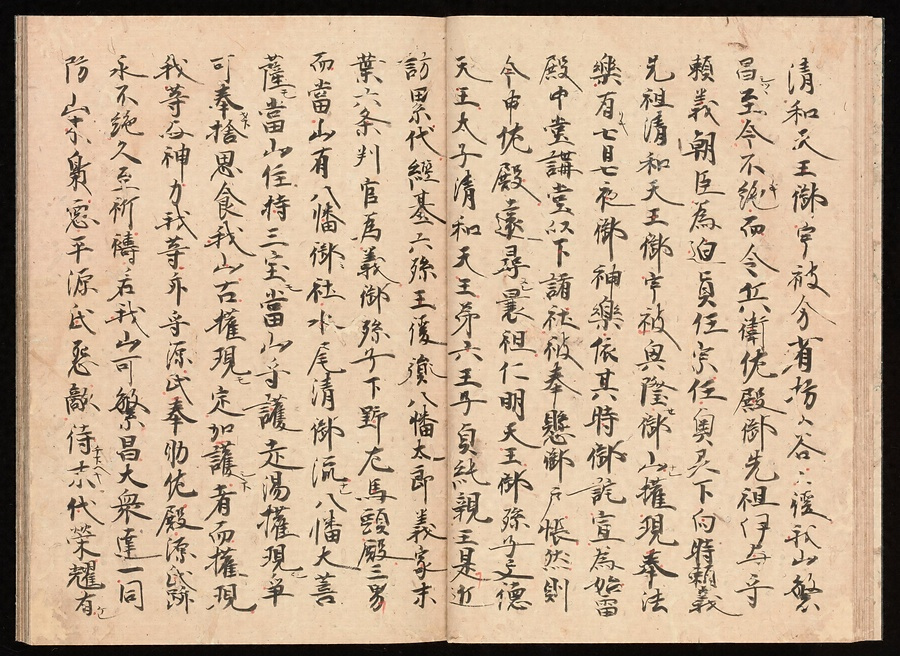 清和天王御宇被分省坊々谷々後我山繁
昌至今不絶而今兵衛佐殿御先祖伊与守
頼義朝臣為迫貞任宗任奥各下向時頼義
先祖清和天王御宇被興隆御山權現奉法
樂有七日七夜御神樂依其時御託宣為始雷
殿中堂講堂以下諸社被奉懸御戸帳然則
今申佐殿遠尋曩祖仁明天王御孫子文徳
天王太子清和天王第六王子貞純親王是近
訪累代經基六孫王後胤八幡太郎義家末
葉六条判官為義御孫子下野左馬頭殿三男
而當山有八幡御社水尾清御流八幡大菩
薩當山住持三宝當山守護走湯權現争
可奉捨思食我山古權現定加護者而權現
我等与神力我等亦守源氏奉助佐殿源氏跡
永不絶久至祈禱君我山可繁昌大衆達一同
防山木梟悪平源氏悪敵侍末代榮耀有